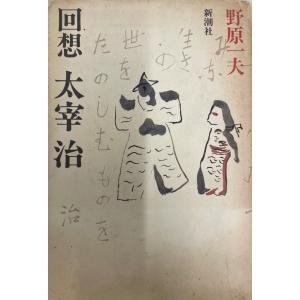 野原一夫
新潮社
生き
の
世を
たのしむものを
治
回想 太宰治